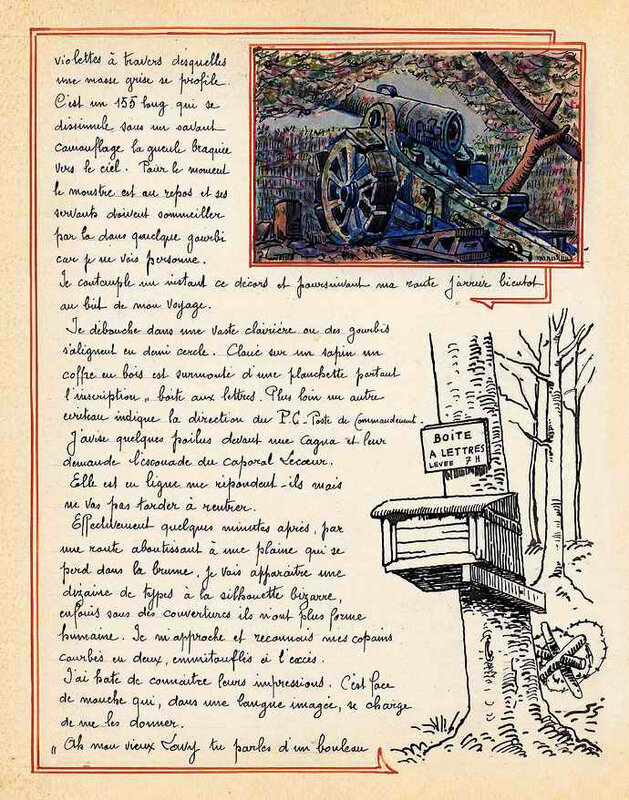 violettes à travers desquelles
une masse grise se profile.
C'est un 155 long qui se
dissimule sous un savant
camouflage la gueule braquée
vers le ciel. Pour le moment
le monstre est au repos et ses
servants doivent sommeiller
par là dans quelque gourbi
car je ne vois personne.
Je contemple un instant ce décors et poursuivant ma route j'arrive bientôt
au but de mon voyage.
Je débouche dans une vaste clairière ou des gourbis
s'alignent en demi cercle. Cloué sur un sapin un
coffre en bois est surmonté d'une planchette portant
l'inscription „ boite aux lettres. Plus loin un autre
écriteau indique la direction du P.C - Poste de Commandement.
J'avise quelques poilus devant une Cagna et leur
demande l'escouade du caporal Lecœur.
Elle est en ligne me répondent-ils mais
ne vas pas tarder à rentrer.
Effectivement quelques minutes après, par
une route aboutissant à une plaine qui se
perd dans la brume, je vois apparaître une
dizaine de types à la silhouette bizarre,
enfouis sous des couvertures ils n'ont plus forme
humaine. Je m'approche et reconnais mes copains
courbés en deux, emmitouflés à l'excès.
J'ai hate de connaitre leurs impressions. C'est Face
de mouche qui, dans une langue imagée, se charge
de me les donner.
„ Ah mon vieux Lavy tu parles d'un bouleau
BOITE
A LETTRES
LEVEE 7 H